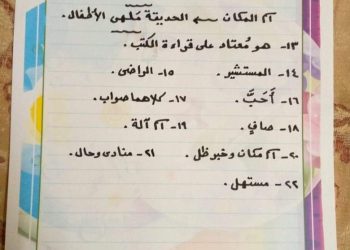 اسم المكان ← الحديقة مَلهى الأطفال.
١٣- هو مُعتاد على قراءة الكتب.
١٤- المستشير. ١٥- الراضى.
١٦- أَحَبَّ. ١٧- كلاهما صواب.
١٨- صافٍ. ١٩- اسم آلة.
٢٠- اسم مكان وخبر ظل. ٢١- منادى وحال.
٢٢- مستهل.